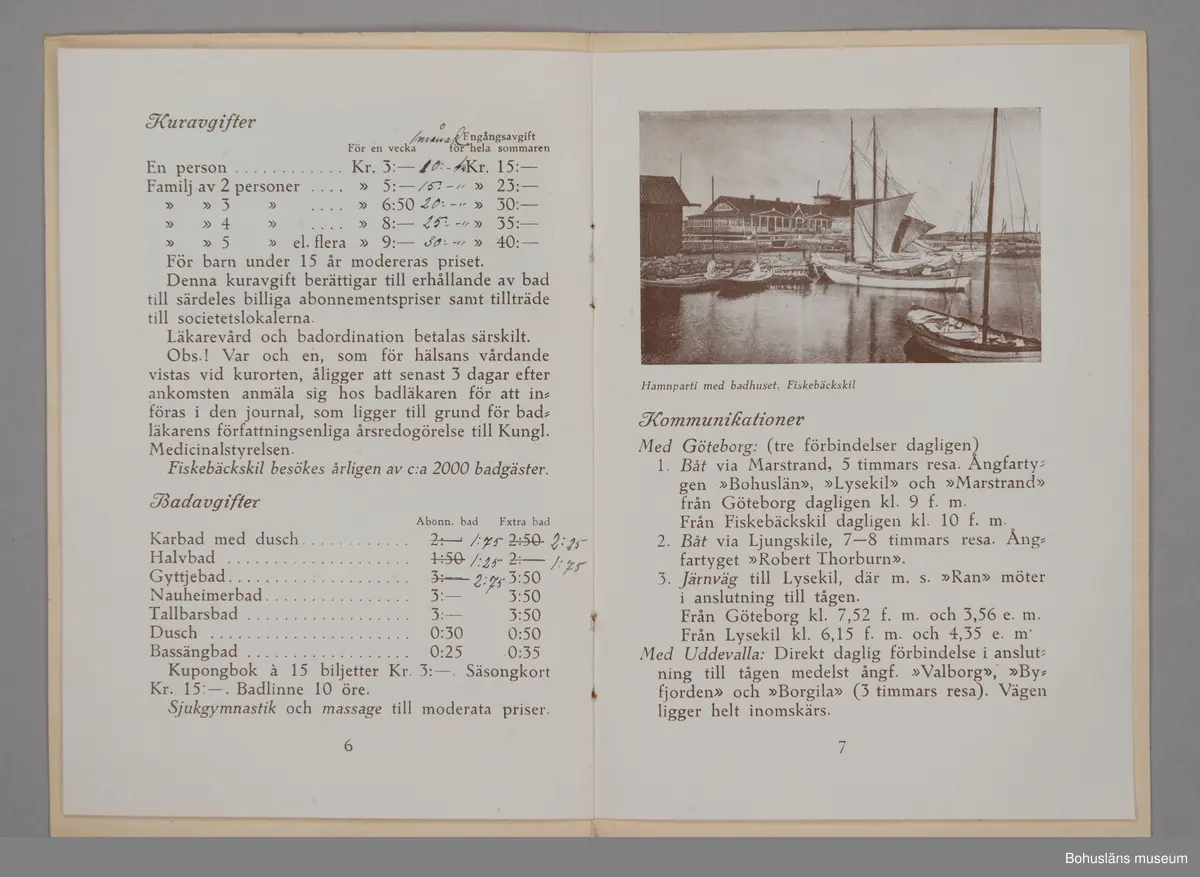 Kuravgifter
månad Engångsavgift
För en vecka för hela sommaren
En person ............ Kr. 3:— 10:- Kr. 15:—
Familj av 2 personer .... » 5:— 15:-" » 23:—
» » 3 » .... » 6:50 20:-" » 30:—
» » 4 » .... » 8:— 25:-" » 35:—
» » 5 » el. flera » 9:— 30:-" » 40:—
För barn under 15 år modereras priset.
Denna kuravgift berättigar till erhållande av bad
till särdeles billiga abonnementspriser samt tillträde
till societetslokalerna.
Läkarevård och badordination betalas särskilt.
Obs.! Var och en, som för hälsans vårdande
vistas vid kurorten, åligger att senast 3 dagar efter
ankomsten anmäla sig hos badläkaren för att in=
föras i den journal, som ligger till grund för bad=
läkarens författningsenliga årsredogörelse till Kungl.
Medicinalstyrelsen.
Fiskebäckskil besökes årligen av c:a 2000 badgäster.
Badavgifter
Abonn. bad Extra bad
Karbad med dusch............ 2:— 1:75 2:50 2:25
Halvbad .................... 1:50 1:25 2:— 1:75
Gyttjebad.................... 3:— 2:75 3:50
Nauheimerbad................ 3:— 3:50
Tallbarsbad .................. 3:— 3:50
Dusch ...................... 0:30 0:50
Bassängbad .................. 0:25 0:35
Kupongbok à 15 biljetter Kr. 3:—. Säsongkort
Kr. 15:—. Badlinne 10 öre.
Sjukgymnastik och massage till moderata priser.
6
Hamnparti med badhuset, Fiskebäckskil
Kommunikationer
Med Göteborg: (tre förbindelser dagligen)
1. Båt via Marstrand, 5 timmars resa. Ångfarty=
gen »Bohuslän», »Lysekil» och »Marstrand»
från Göteborg dagligen kl. 9 f. m.
Från Fiskebäckskil dagligen kl. 10 f. m.
2. Båt via Ljungskile, 7—8 timmars resa. Ång=
fartyget »Robert Thorburn».
3. Järnväg till Lysekil, där m. s. »Ran» möter
i anslutning till tågen.
Från Göteborg kl. 7,52 f. m. och 3,56 e. m.
Från Lysekil kl. 6,15 f. m. och 4,35 e. m.
Med Uddevalla: Direkt daglig förbindelse i anslut=
ning till tågen medelst ångf. »Valborg», »By=
fjorden» och »Borgila» (3 timmars resa). Vägen
ligger helt inomskärs.
7
Bohusläns museum